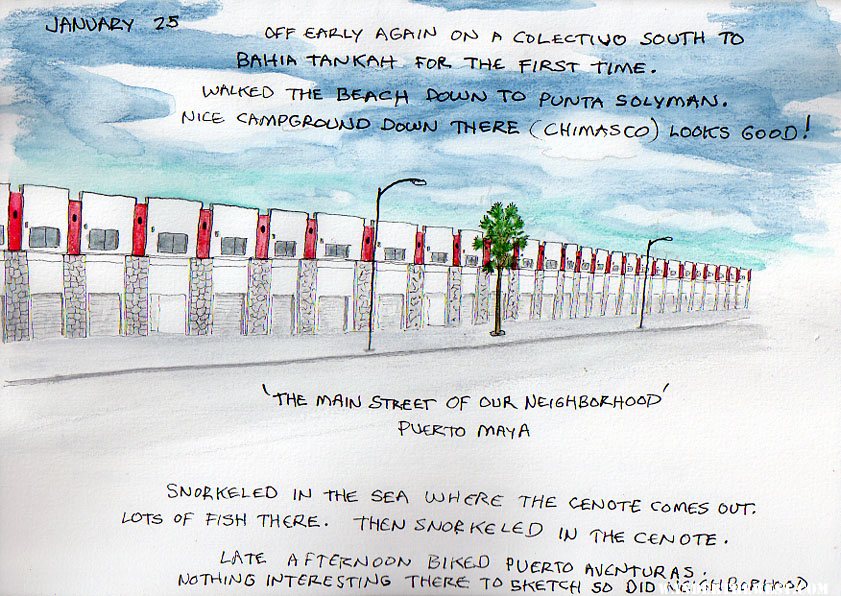 JANUARY 25
OFF EARLY AGAIN ON A COLECTIVO SOUTH TO
BAHIA TANKAH FOR THE FIRST TIME.
WALKED THE BEACH DOWN TO PUNTA SOLYMAN.
NICE CAMPGROUND DOWN THERE (CHIMASCO) LOOKS GOOD!
'THE MAIN STREET OF OUR NEIGHBORHOOD'
PUERTO MAYA
SNORKELED IN THE SEA WHERE THE CENOTE COMES OUT.
LOTS OF FISH THERE. THEN SNORKELED IN THE CENOTE.
LATE AFTERNOON BIKED PUERTO AVENTURAS.
NOTHING INTERESTING THERE TO SKETCH SO DID NEIGHBORHOOD